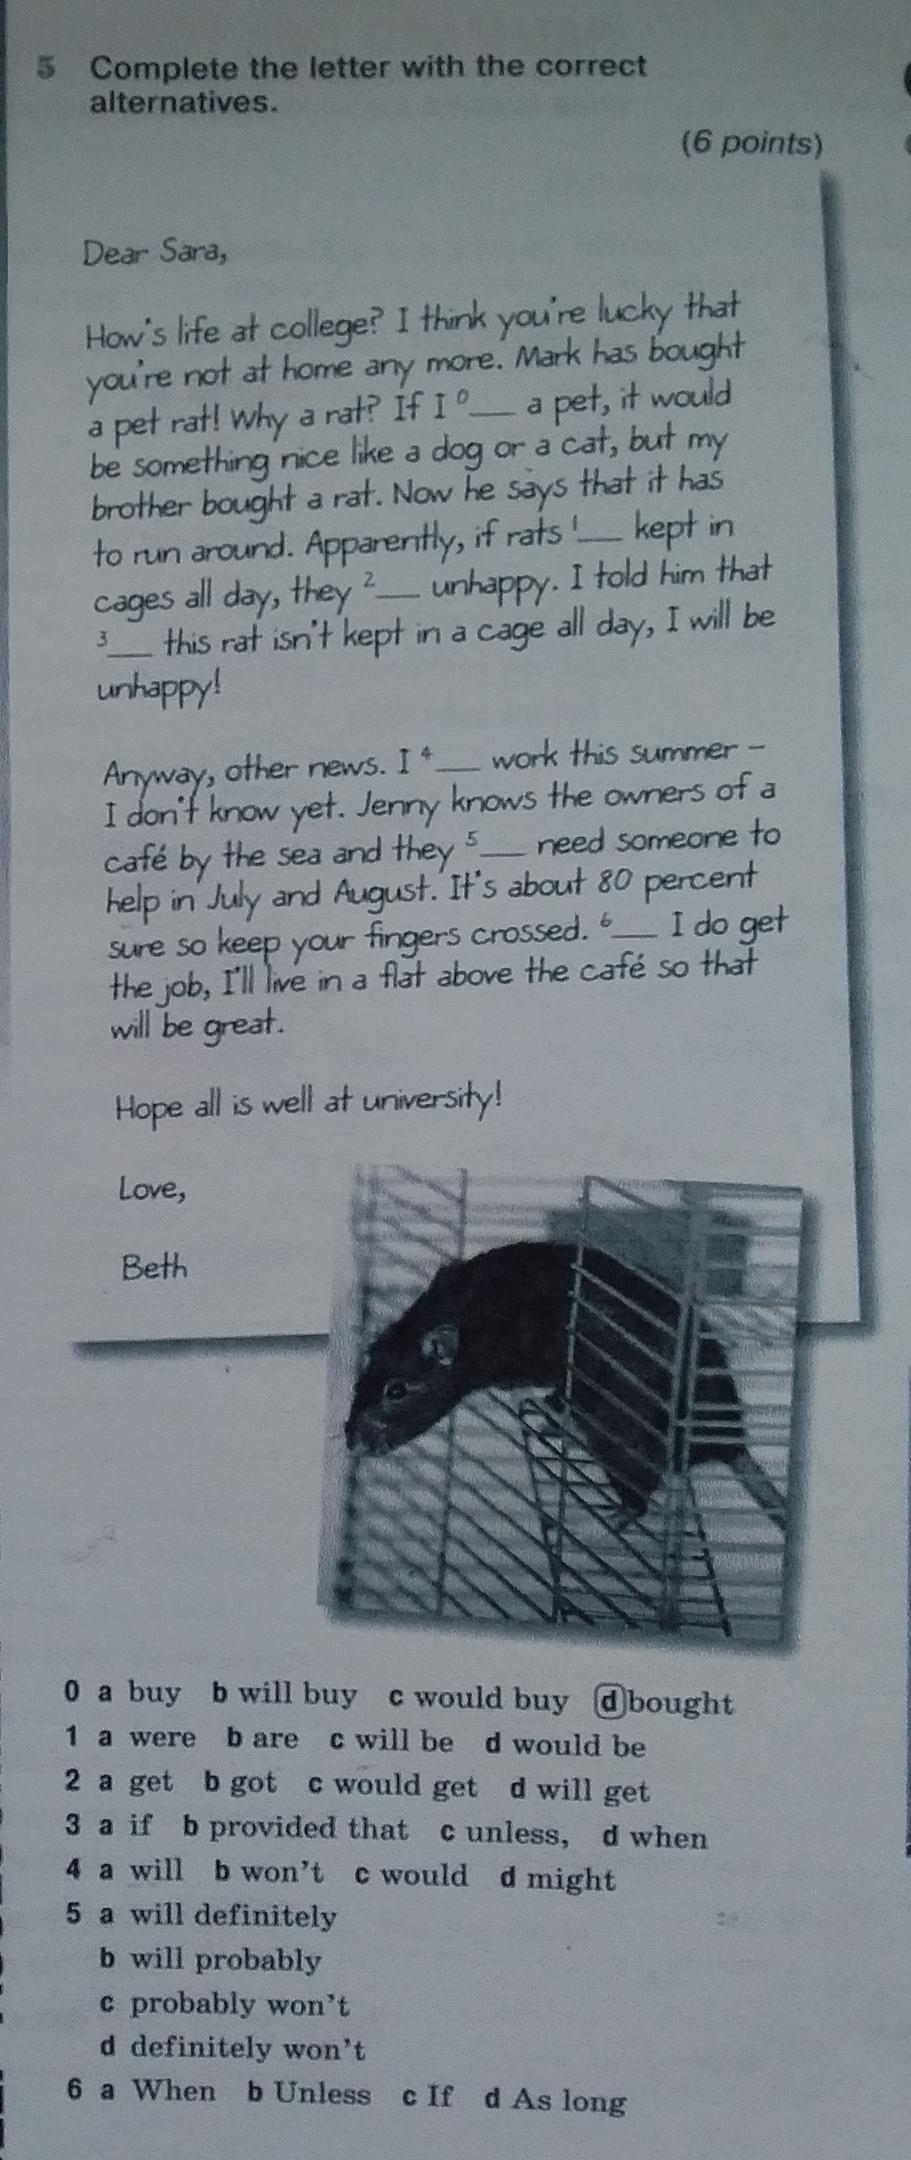 5 Complete the letter with the correct
alternatives.
(6 points)
Dear Sara,
How's life at college? I think you're lucky that
you're not at home any more. Mark has bought
a pet rat! Why a rat? If I ⁰___ a pet, it would
be something nice like a dog or a cat, but my
brother bought a rat. Now he says that it has
to run around. Apparently, if rats ¹___ kept in
cages all day, they ²___ unhappy. I told him that
³___ this rat isn't kept in a cage all day, I will be
unhappy!
Anyway, other news. I ⁴___ work this summer –
I don't know yet. Jenny knows the owners of a
café by the sea and they ⁵___ need someone to
help in July and August. It's about 80 percent
sure so keep your fingers crossed. ⁶___ I do get
the job, I'll live in a flat above the café so that
will be great.
Hope all is well at university!
Love,
Beth
0 a buy b will buy c would buy d bought
1 a were b are c will be d would be
2 a get b got c would get d will get
3 a if b provided that c unless, d when
4 a will b won't c would d might
5 a will definitely
b will probably
c probably won't
d definitely won't
6 a When b Unless c If d As long